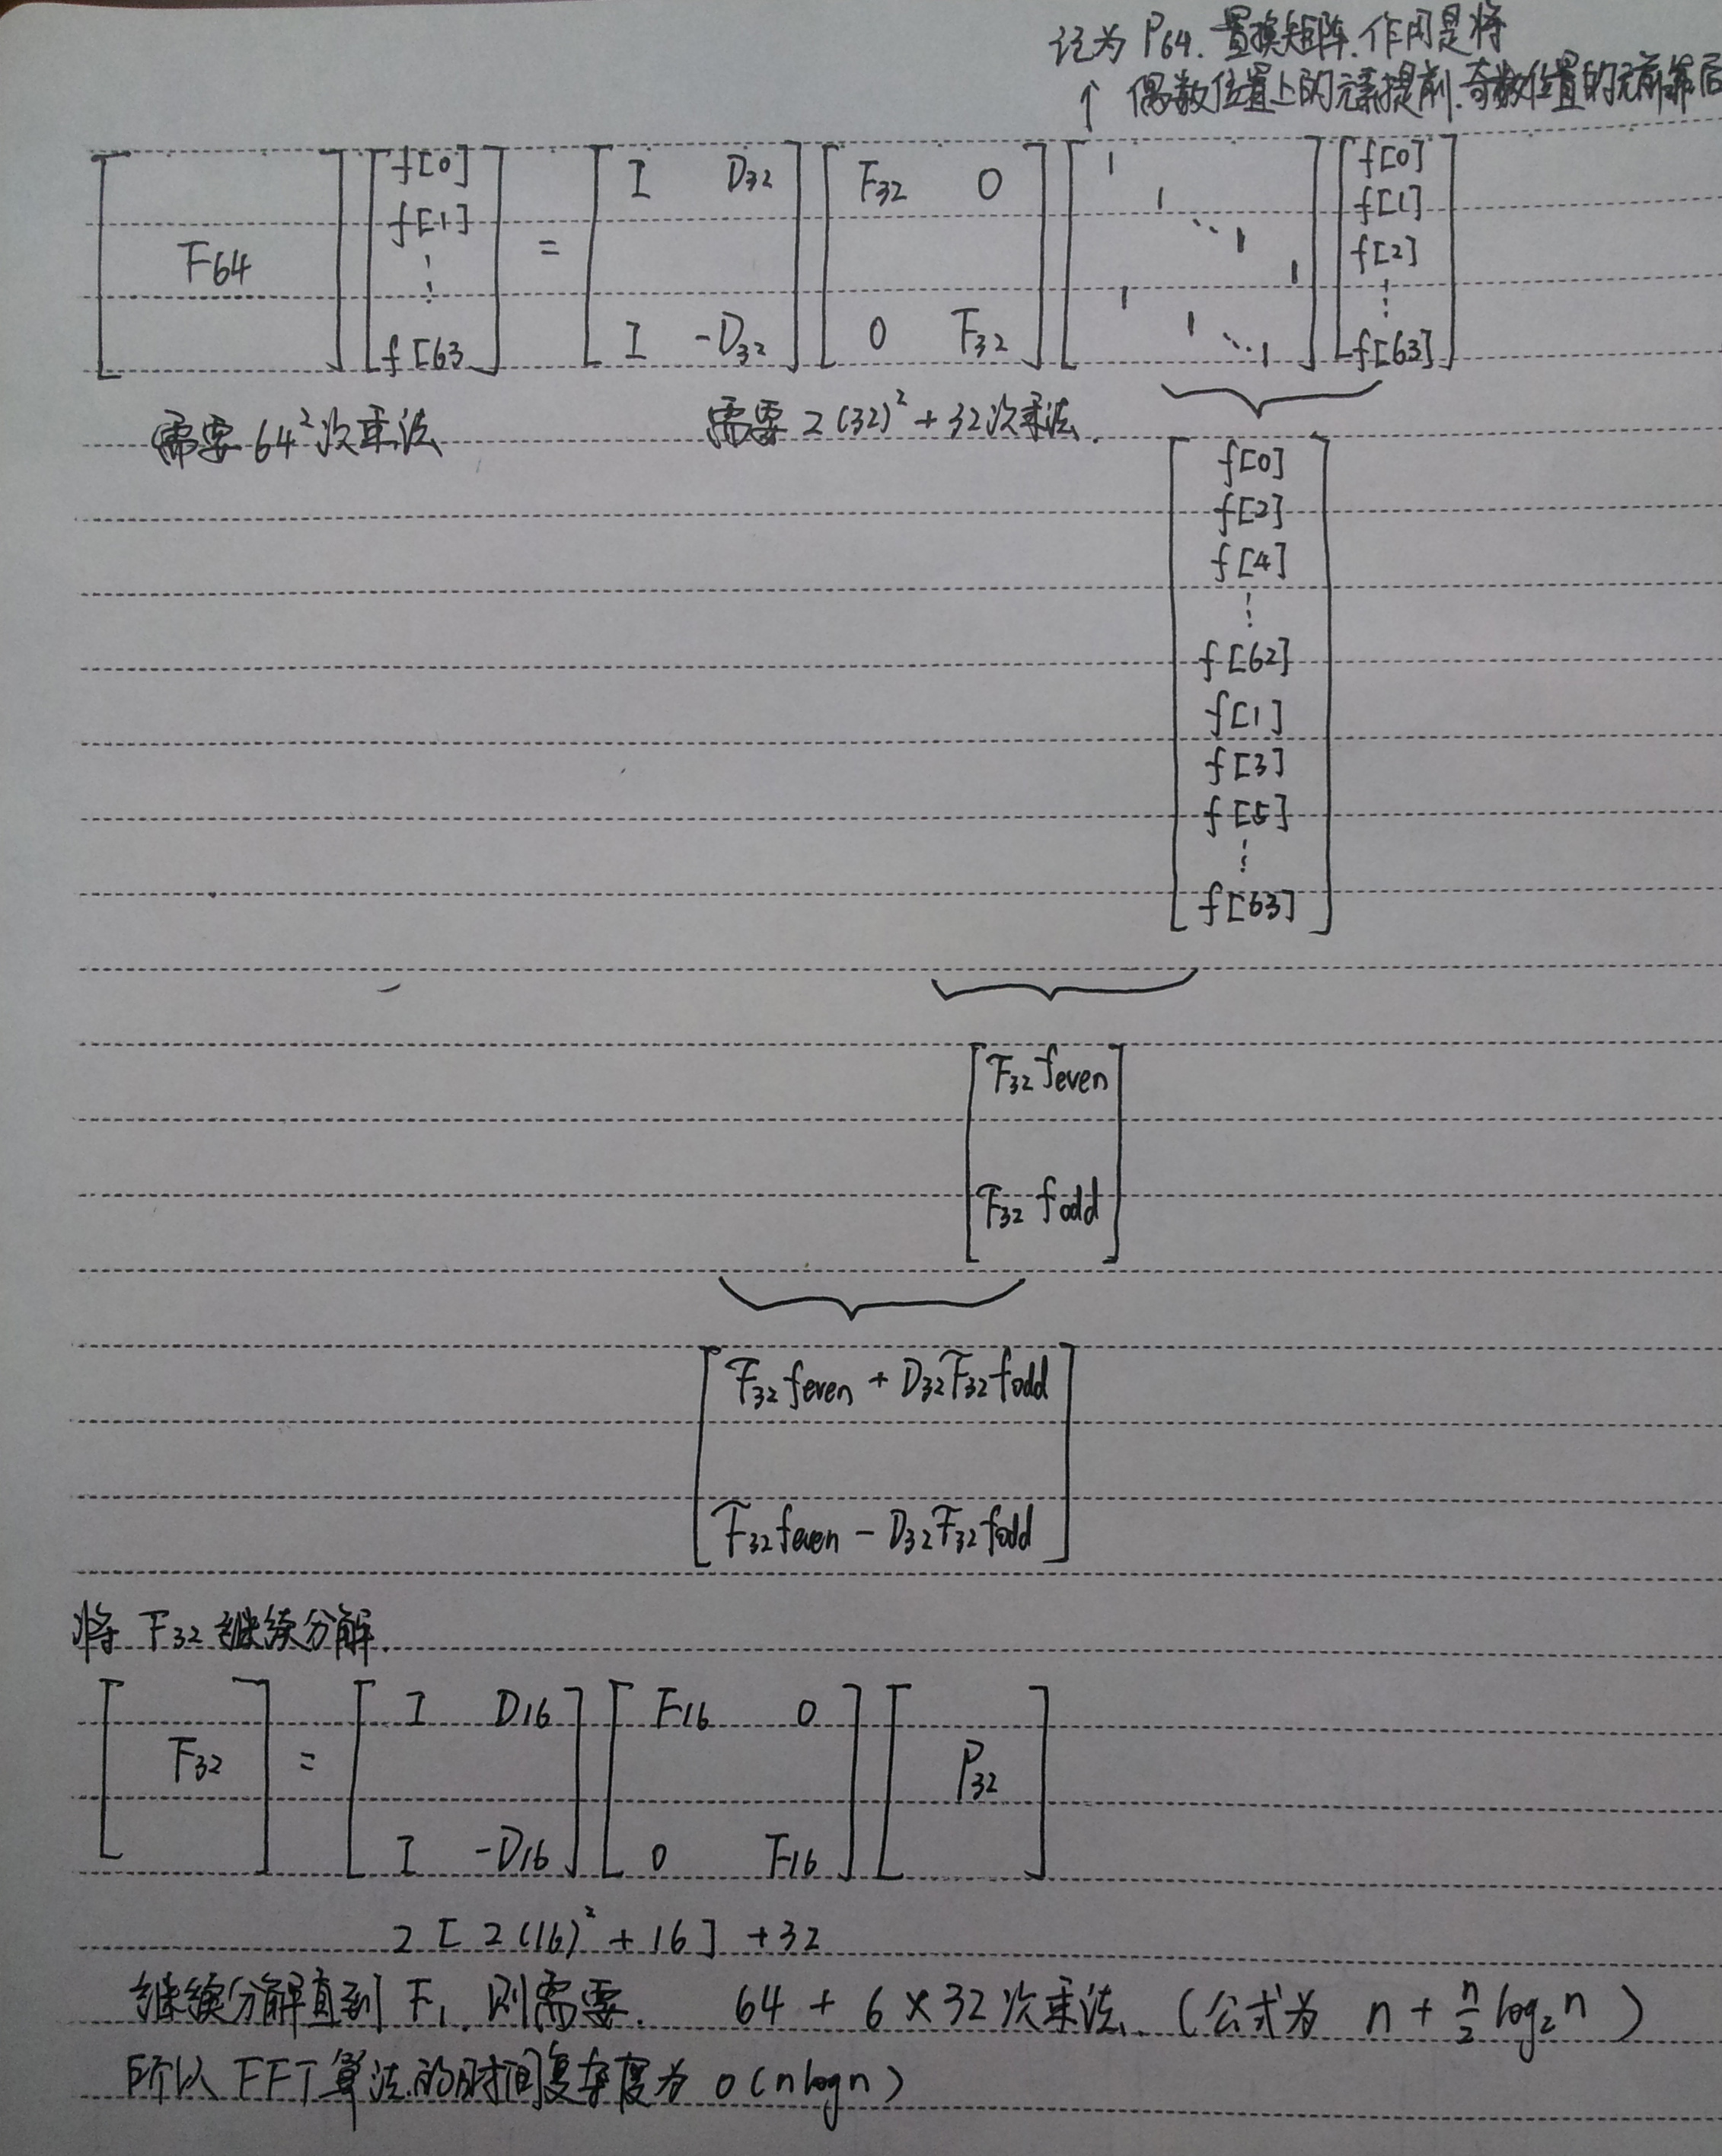 记为 P64. 置换矩阵. 作用是将
↑ 偶数位置上的元素提前. 奇数位置的元素靠后
[ F64 ] [ f[0] f[1] ⋮ f[63 ] = [ I D32 I -D32 ] [ F32 0 0 F32 ] [ 1 1 ⋱ 1 1 1 1 ⋱ 1 ] [ f[0] f[1] f[2] ⋮ f[63] ]
需要 64² 次乘法 需要 2(32)² + 32次乘法.
f[0]
f[2]
f[4]
⋮
f[62]
f[1]
f[3]
f[5]
⋮
f[63]
F32 feven
F32 fodd
F32 feven + D32 F32 fodd
F32 feven - D32 F32 fodd
将 F32 继续分解.
[ F32 ] = [ I D16 I -D16 ] [ F16 0 0 F16 ] [ P32 ]
2 [ 2(16)² + 16 ] + 32
继续分解直到 F1. 则需要. 64 + 6 × 32 次乘法. (公式为 n + n/2 log₂ n )
所以 FFT 算法的时间复杂度为 o(nlogn)